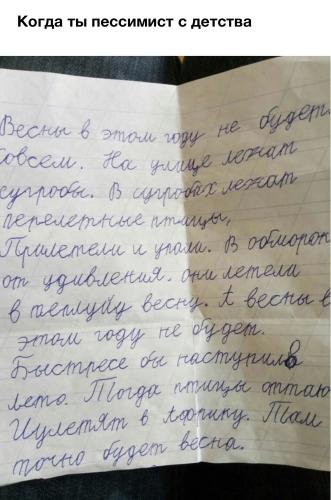 Когда ты пессимист с детства
Весны в этом году не будет
совсем. На улице лежат
сугробы. В сугробах лежат
перелетные птицы,
Прилетели и упали. В обморок
от удивления. они летели
в теплую весну. А весны в
этом году не будет.
Быстресе бы наступило
лето. Тогда птицы оттаю
И улетят в Африку. Там
точно будет весна.